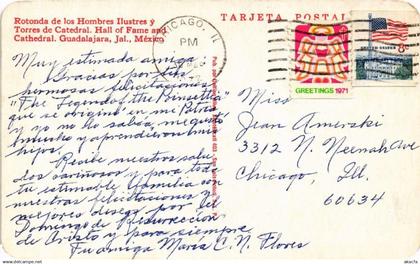 Rotonda de los Hombres Ilustres y
Torres de Catedral. Hall of Fame and
Cathedral. Guadalajara, Jal., México
TARJETA POSTAL
CHICAGO, IL
PM
GREETINGS 1971
UNITED STATES 8c
Muy estimada amiga
Gracias por sus
hermosas felicitaciones
"The Legend of the Poinsettia"
que se origina en mi Patria
y yo no ho sabia, me gustó
mucho y aprendieron mis
hijos.
Reciba nuestros salu-
dos cariñosos y para toda
tu estimable familia con
nuestras felicitaciones y
mejores deseos por el
Domingo de Resurrección
de Cristo y para siempre
Tu amiga Maria C. N. Flores
Miss
Jean Amerski
3312 N. Neenah Ave
Chicago, Ill.
60634
akacia.fr